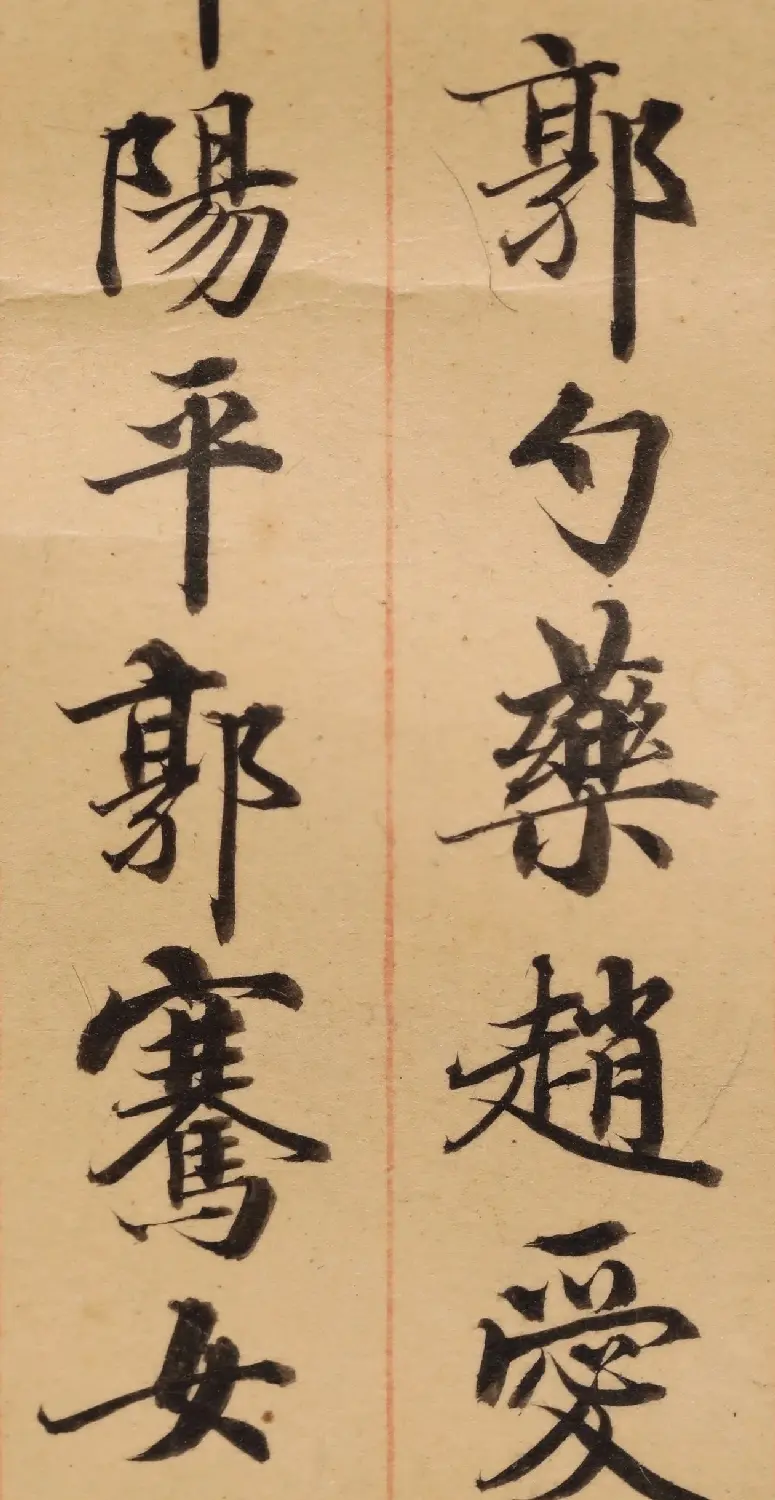 郭勺藥趙愛
陽平郭騫女